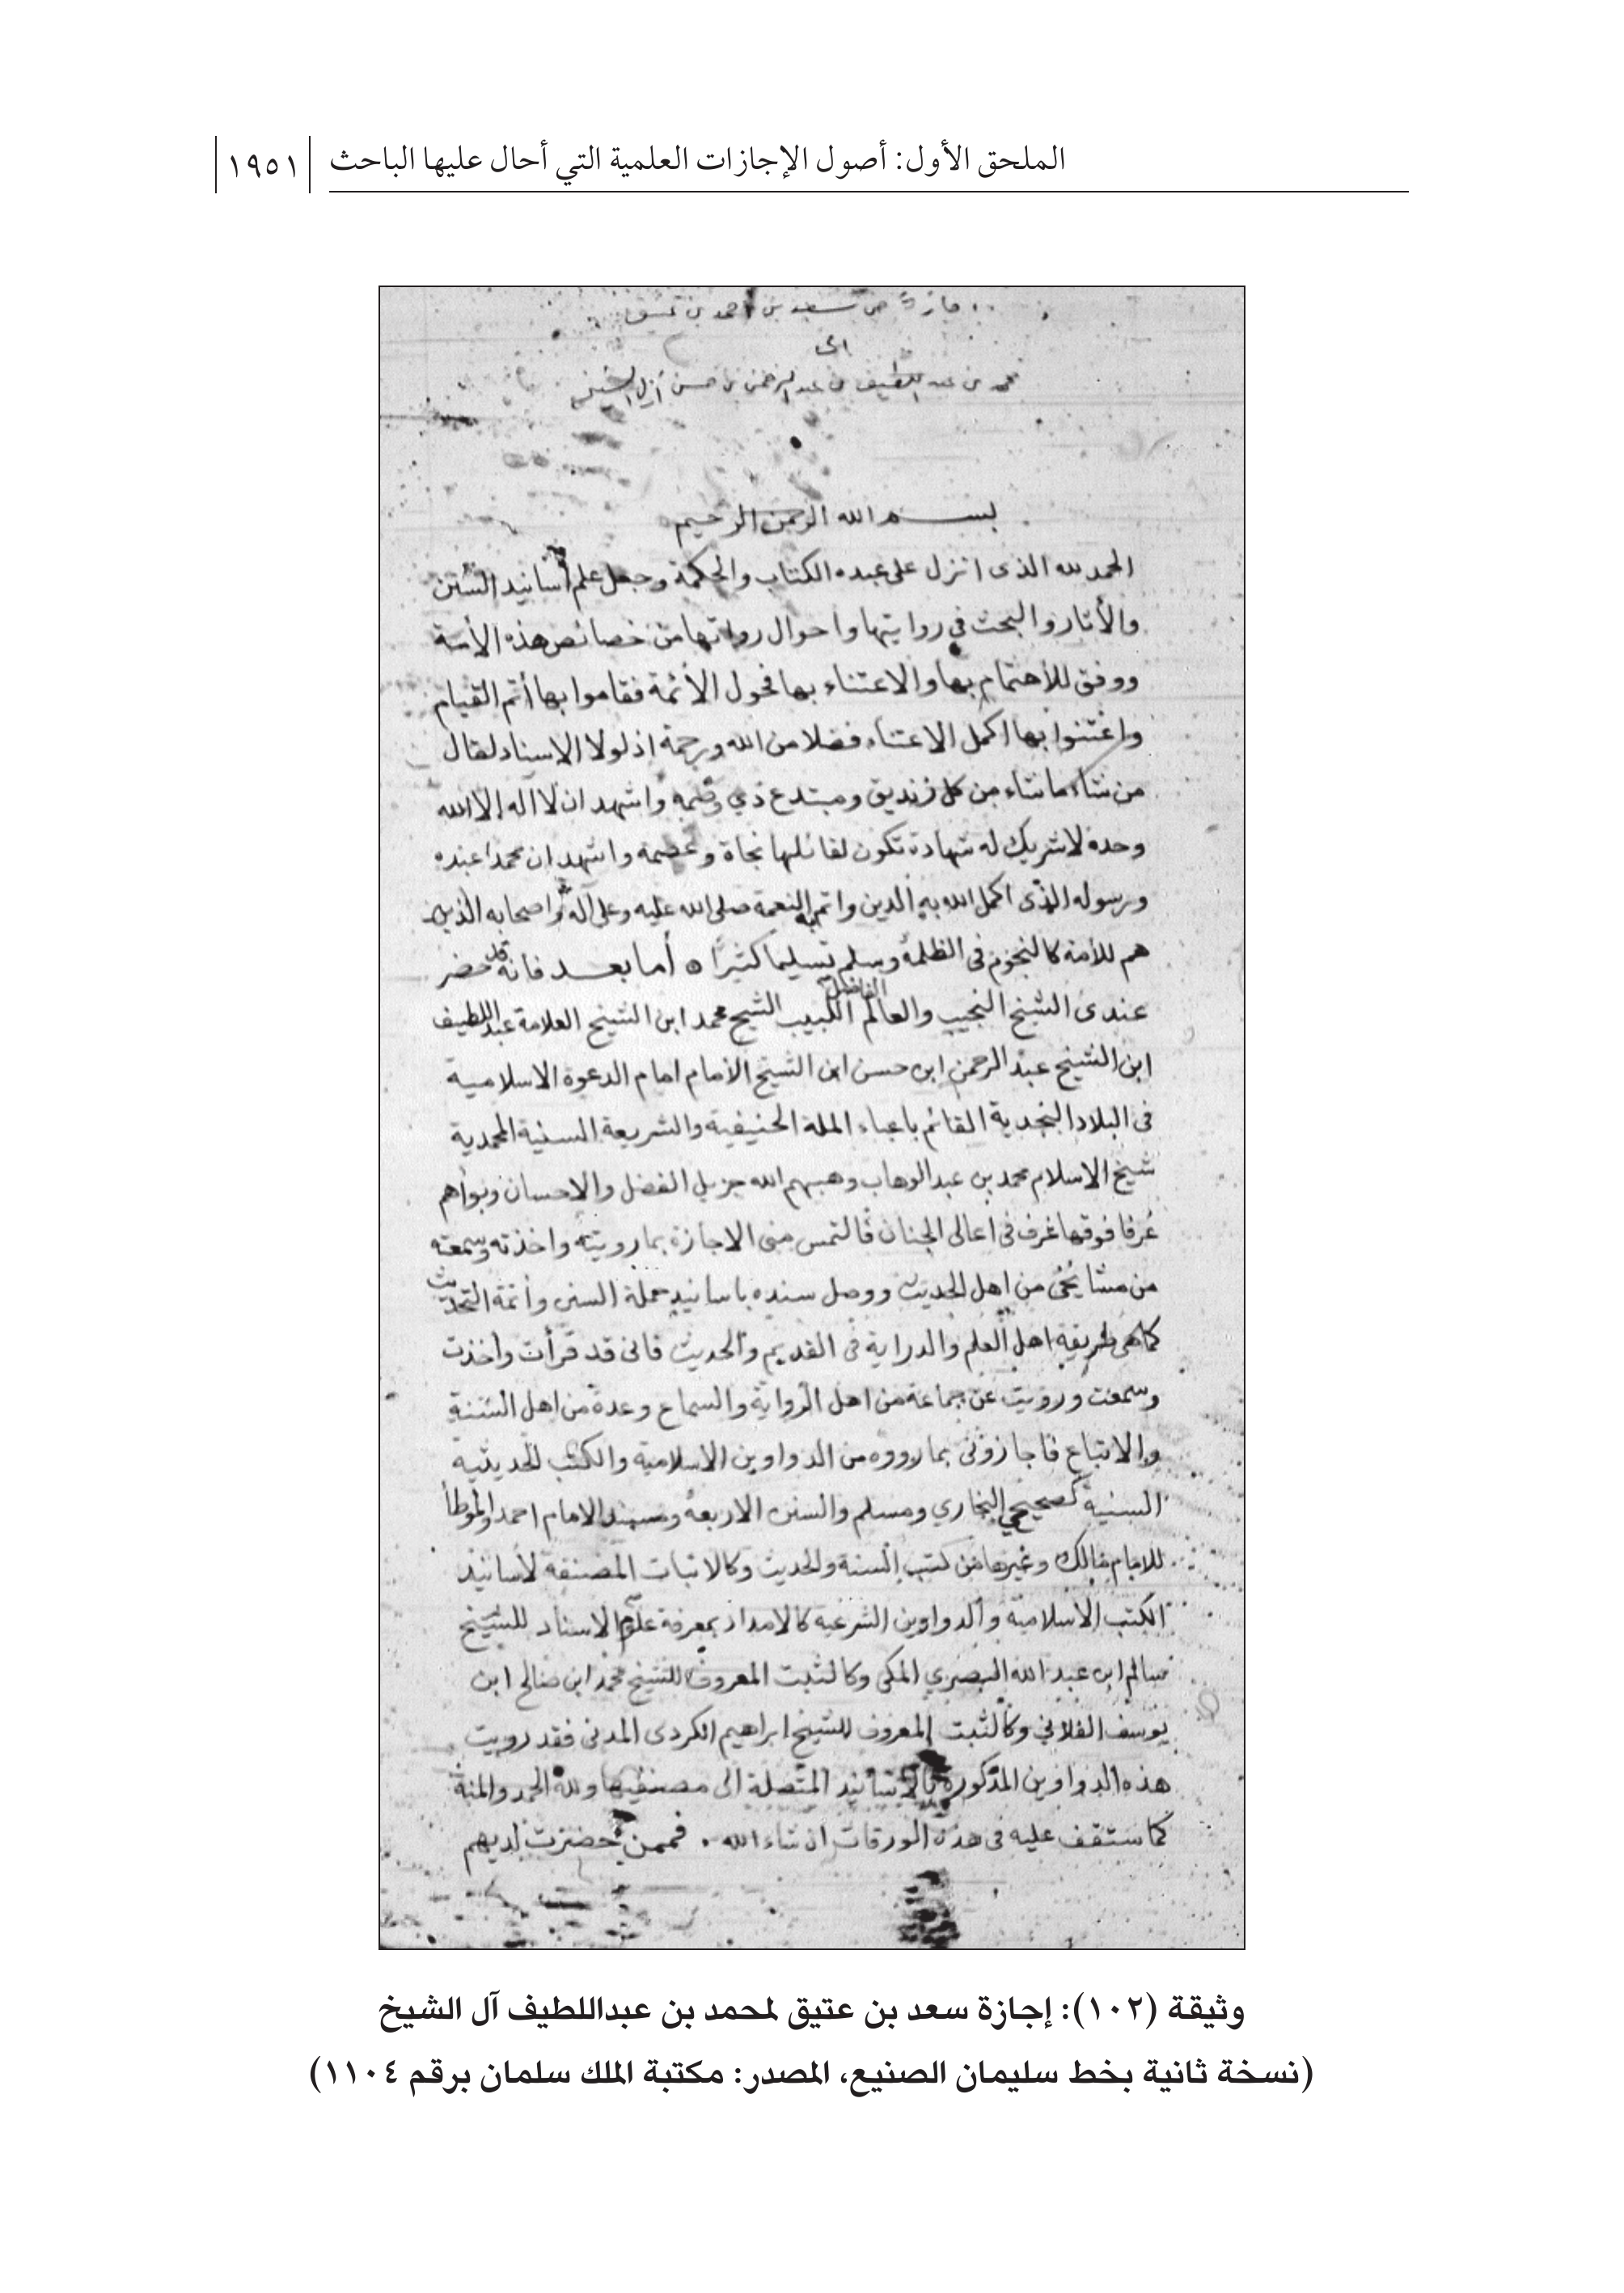 الملحق الأول: أصول الإجازات العلمية التي أحال عليها الباحث
١٩٥١
من سعد بن أحمد بن عتيق
الى
محمد بن عبد اللطيف بن عبد الرحمن بن حسن آل الشيخ
بسم الله الرحمن الرحيم
الحمد لله الذى انزل على عبده الكتاب والحكمة وجعل علم أسانيد السنن
والأثار والبحث في روايتها واحوال رواتها من خصائص هذه الأمة
ووفق للأهتمام بها والاعتناء بها فحول الأئمة فقاموا بها أتم القيام
واعتنوا بها اكمل الاعتناء فضلا من الله ورحمة اذ لولا الاسناد لقال
من شاء ما شاء من كل زنديق ومبتدع ذي واشهد ان لا اله الا الله
وحده لا شريك له شهادة تكون لقائلها نجاة وعصمة واشهد ان محمدا عبده
ورسوله الذى اكمل الله به الدين واتم به النعمة صلى الله عليه وعلى آله واصحابه الذين
هم للأمة كالنجوم فى الظلمة وسلم تسليما كثيرًا ه أما بعد فانه قد حضر
عندى الشيخ النجيب والعالم الفاضل اللبيب الشيخ محمد ابن الشيخ العلامة عبد اللطيف
ابن الشيخ عبد الرحمن ابن حسن ابن الشيخ الأمام امام الدعوة الاسلامية
فى البلاد النجدية القائم باعباء الملة الحنيفية والشريعة السنية المحمدية
شيخ الاسلام محمد بن عبد الوهاب وهبهم الله جزيل الفضل والاحسان وبوأهم
غرفا فوقها غرف فى اعالى الجنان فالتمس منى الاجازة بما رويته واخذته وسمعته
من مشايخى من اهل الحديث ووصل سنده باسانيد حملة السنن وأئمة التحديث
كما هى طريقة اهل العلم والدراية فى القديم والحديث فانى قد قرأت وأخذت
وسمعت ورويت عن جماعة من اهل الرواية والسماع وعدة من اهل السنة
والاتباع فاجازونى بما رووه من الدواوين الاسلامية والكتب الحديثية
السنية كصحيحي البخاري ومسلم والسنن الاربعة ومسند الامام احمد والموطأ
للامام مالك وغيرها من كتب السنة والحديث وكالاثبات المصنفة لأسانيد
الكتب الاسلامية والدواوين الشرعية كالامداد بمعرفة علو الاسناد للشيخ
سالم ابن عبد الله البصري المكى وكالثبت المعروف للشيخ محمد ابن صالح ابن
يوسف الفلاني وكالثبت المعروف للشيخ ابراهيم الكردى المدنى فقد رويت
هذه الدواوين المذكورة بالأسانيد المتصلة الى مصنفيها ولله الحمد والمنة
كما ستقف عليه فى هذه الورقات ان شاء الله . فممن حضرت لديهم
وثيقة (١٠٢): إجازة سعد بن عتيق لمحمد بن عبداللطيف آل الشيخ
(نسخة ثانية بخط سليمان الصنيع، المصدر: مكتبة الملك سلمان برقم ١١٠٤)